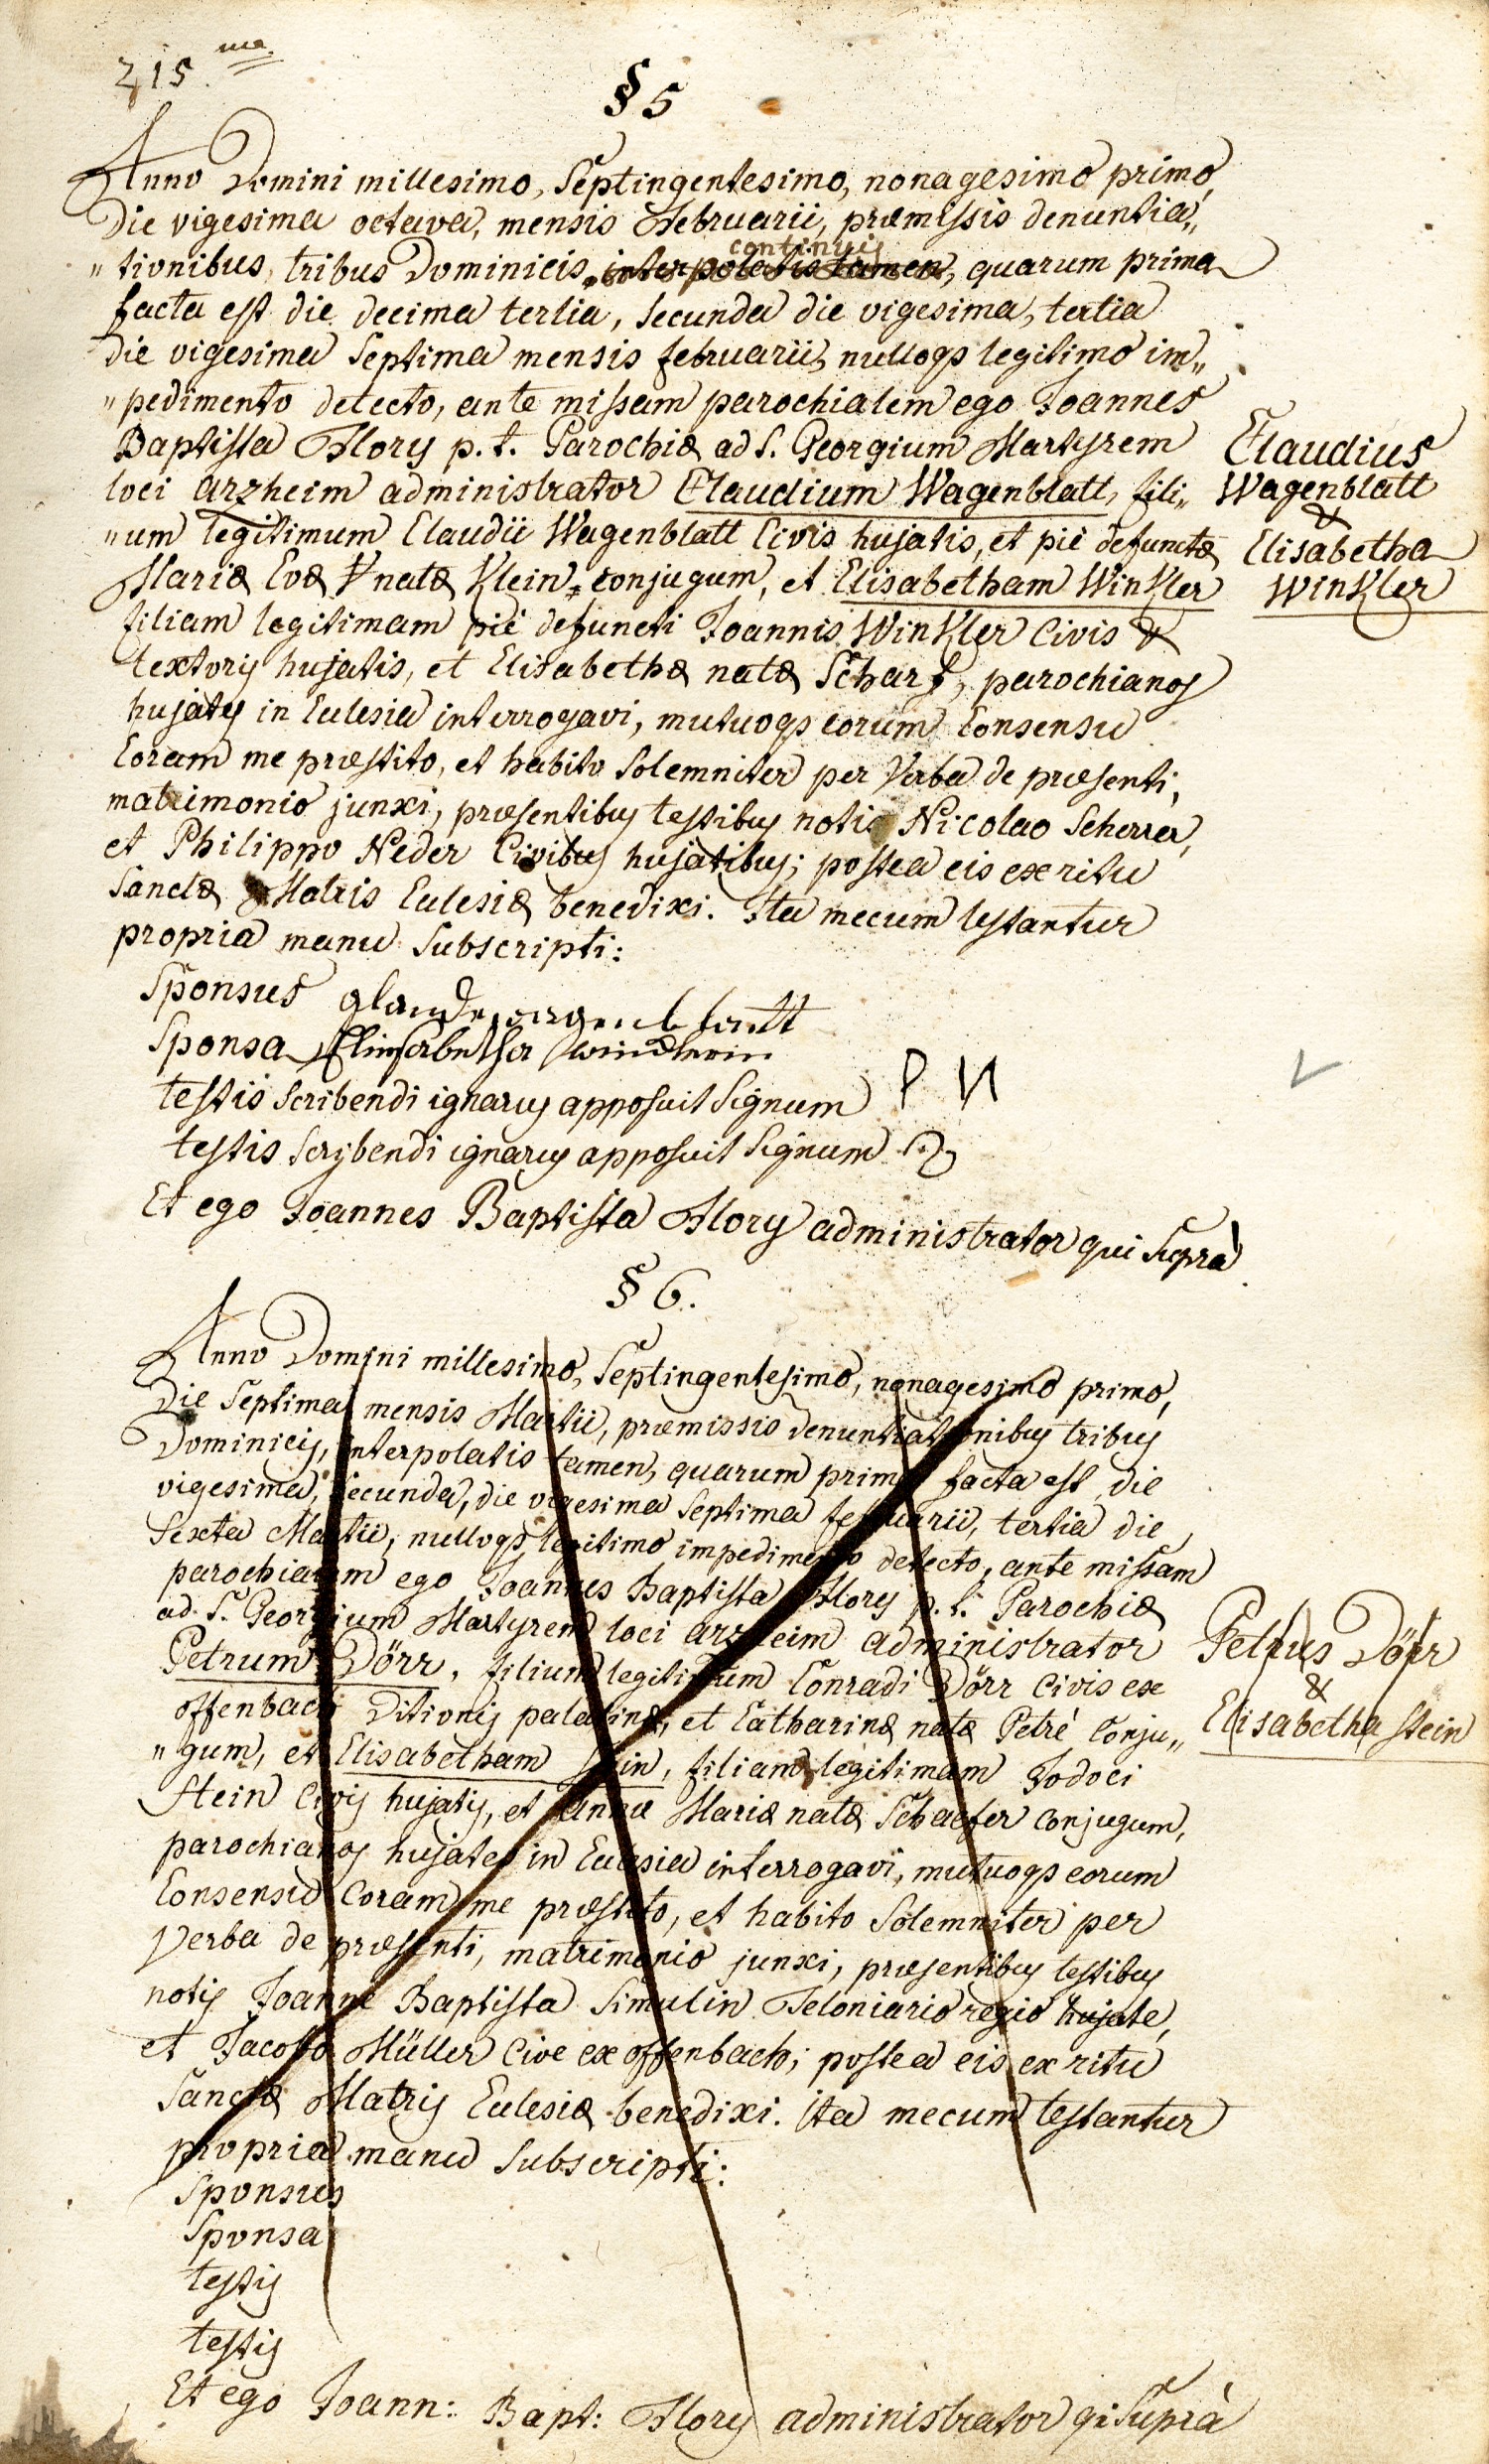 215.ma
§ 5
Anno Domini millesimo, Septingentesimo, nonagesimo primo,
Die vigesima octava, mensis Februarii, præmissis denuntia„
„tionibus tribus Dominicis, interpolatis tamen, continuis quarum prima
facta est die decima tertia, Secunda die vigesima, tertia
die vigesima Septima mensis februarii, nulloqs legitimo im„
„pedimento detecto, ante missam parochialem ego Joannes
Baptista Flory p. t. Parochiæ ad S. Georgium Martyrem
loci arzheim administrator Claudium Wagenblatt, fili„
„um legitimum Claudii Wagenblatt Civis hujatis, et piè defunctæ
Mariæ Evæ natæ Klein conjugum, et Elisabetham Winkler
filiam legitimam piè defuncti Joannis Winkler Civis &
textoris hujatis, et Elisabethæ natæ Scharf, parochianos
hujates in Eclesia interrogavi, mutuoqs eorum Consensu
Coram me præstito, et habito Solemniter per Verba de præsenti,
matrimonio junxi, præsentibus testibus notis Nicolao Scherrer,
et Philippo Neder Civibus hujatibus; postea eis ex ritu
Sanctæ Matris Eclesiæ benedixi. Ita mecum testantur
propria manu Subscripti:
Claudius
Wagenblatt
&
Elisabetha
Winkler
Sponsus
Sponsa
testis Scribendi ignarus apposuit Signum P N
testis Scribendi ignarus apposuit Signum
Et ego Joannes Baptista Flory administrator qui Suprà
§ 6.
Anno Domini millesimo, Septingentesimo, nonagesimo primo,
Die Septima mensis Martii, præmissis denuntiationibus tribus
Dominicis, interpolatis tamen, quarum prima facta est die
vigesima, Secunda, die vigesima Septima februarii, tertia die
Sexta Martii, nulloqs legitimo impedimento detecto, ante missam
parochialem ego Joannes Baptista Flory p. t. Parochiæ
ad S. Georgium Martyrem loci arzheim administrator
Petrum Dörr, filium legitimum Conradi Dörr Civis ex
offenbach Ditionis palatinæ, et Catharinæ natæ Petré Conju„
„gum, et Elisabetham Stein, filiam legitimam Jodoci
Stein Civis hujatis, et Annæ Mariæ natæ Schaefer Conjugum,
parochianos hujates in Eclesia interrogavi, mutuoqs eorum
Consensu Coram me præstito, et habito Solemniter per
Verba de præsenti, matrimonio junxi, præsentibus testibus
notis Joanne Baptista Simulin Teloniario regio hujate,
et Jacobo Müller Cive ex offenbach; postea eis ex ritu
Sanctæ Matris Eclesiæ benedixi. Ita mecum testantur
propria manu Subscripti:
Petrus Dörr
&
Elisabetha Stein
Sponsus
Sponsa
testis
testis
Et ego Joann: Bapt: Flory administrator qi Suprà